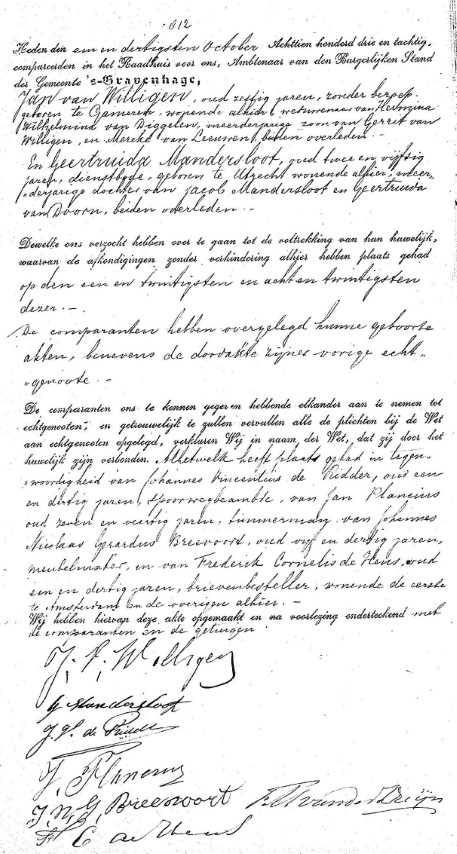 812
Heden den een en dertigsten October Achttien honderd drie en tachtig,
compareerden in het Raadhuis voor ons, Ambtenaar van den Burgerlijken Stand
der Gemeente 's-Gravenhage,
Jan van Willigen, oud zestig jaren, zonder beroep,
geboren te Gameren, wonende alhier, weduwnaar van Hermina
Wilhelmina van Diggelen, meerderjarige zoon van Gerrit van
Willigen, en Merike van Leeuwen, beiden overleden.
En Geertruida Mandersloot, oud twee en vijftig
jaren, dienstbode, geboren te Utrecht wonende alhier, meer-
derjarige dochter van Jacob Mandersloot en Geertruida
van Doorn, beiden overleden.
Dewelke ons verzocht hebben over te gaan tot de voltrekking van hun huwelijk,
waarvan de afkondigingen zonder verhindering alhier hebben plaats gehad
op den een en twintigsten en acht en twintigsten
dezer.
De comparanten hebben overgelegd hunne geboorte
akten, benevens de doodakte zijner vorige echt-
genoote.
De comparanten ons te kennen gegeven hebbende elkander aan te nemen tot
echtgenooten, en getrouwelijk te zullen vervullen alle de plichten bij de Wet
aan echtgenooten opgelegd, verklaren Wij in naam der Wet, dat zij door het
huwelijk zijn verbonden. Al hetwelk heeft plaats gehad in tegen-
woordigheid van Johannes Vincentius de Ridder, oud een
en dertig jaren, spoorwegbeambte, van Jan Plancius
oud zeven en veertig jaren, timmerman, van Johannes
Nicolaas Gerardus Breevoort, oud vijf en dertig jaren,
meubelmaker, en van Frederik Cornelis de Heus, oud
een en dertig jaren, brievenbesteller, wonende de eerste
te Amsterdam en de overigen alhier.
Wij hebben hiervan deze akte opgemaakt en na voorlezing onderteekend met
de comparanten en de getuigen.
J. v. Willigen
G Mandersloot
J. V. de Ridder
J. Plancius
J. N. G Breevoort
F C de Heus